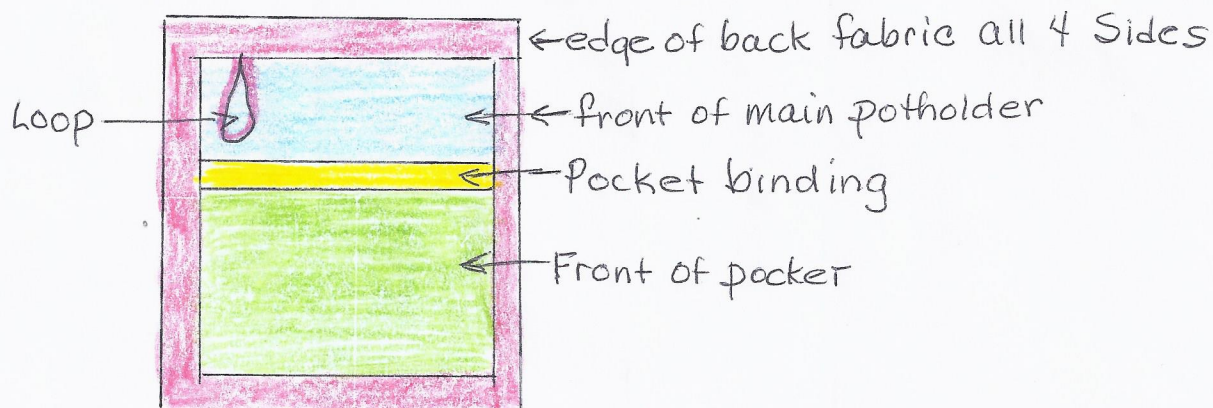 edge of back fabric all 4 Sides
Loop
front of main potholder
Pocket binding
Front of pocker